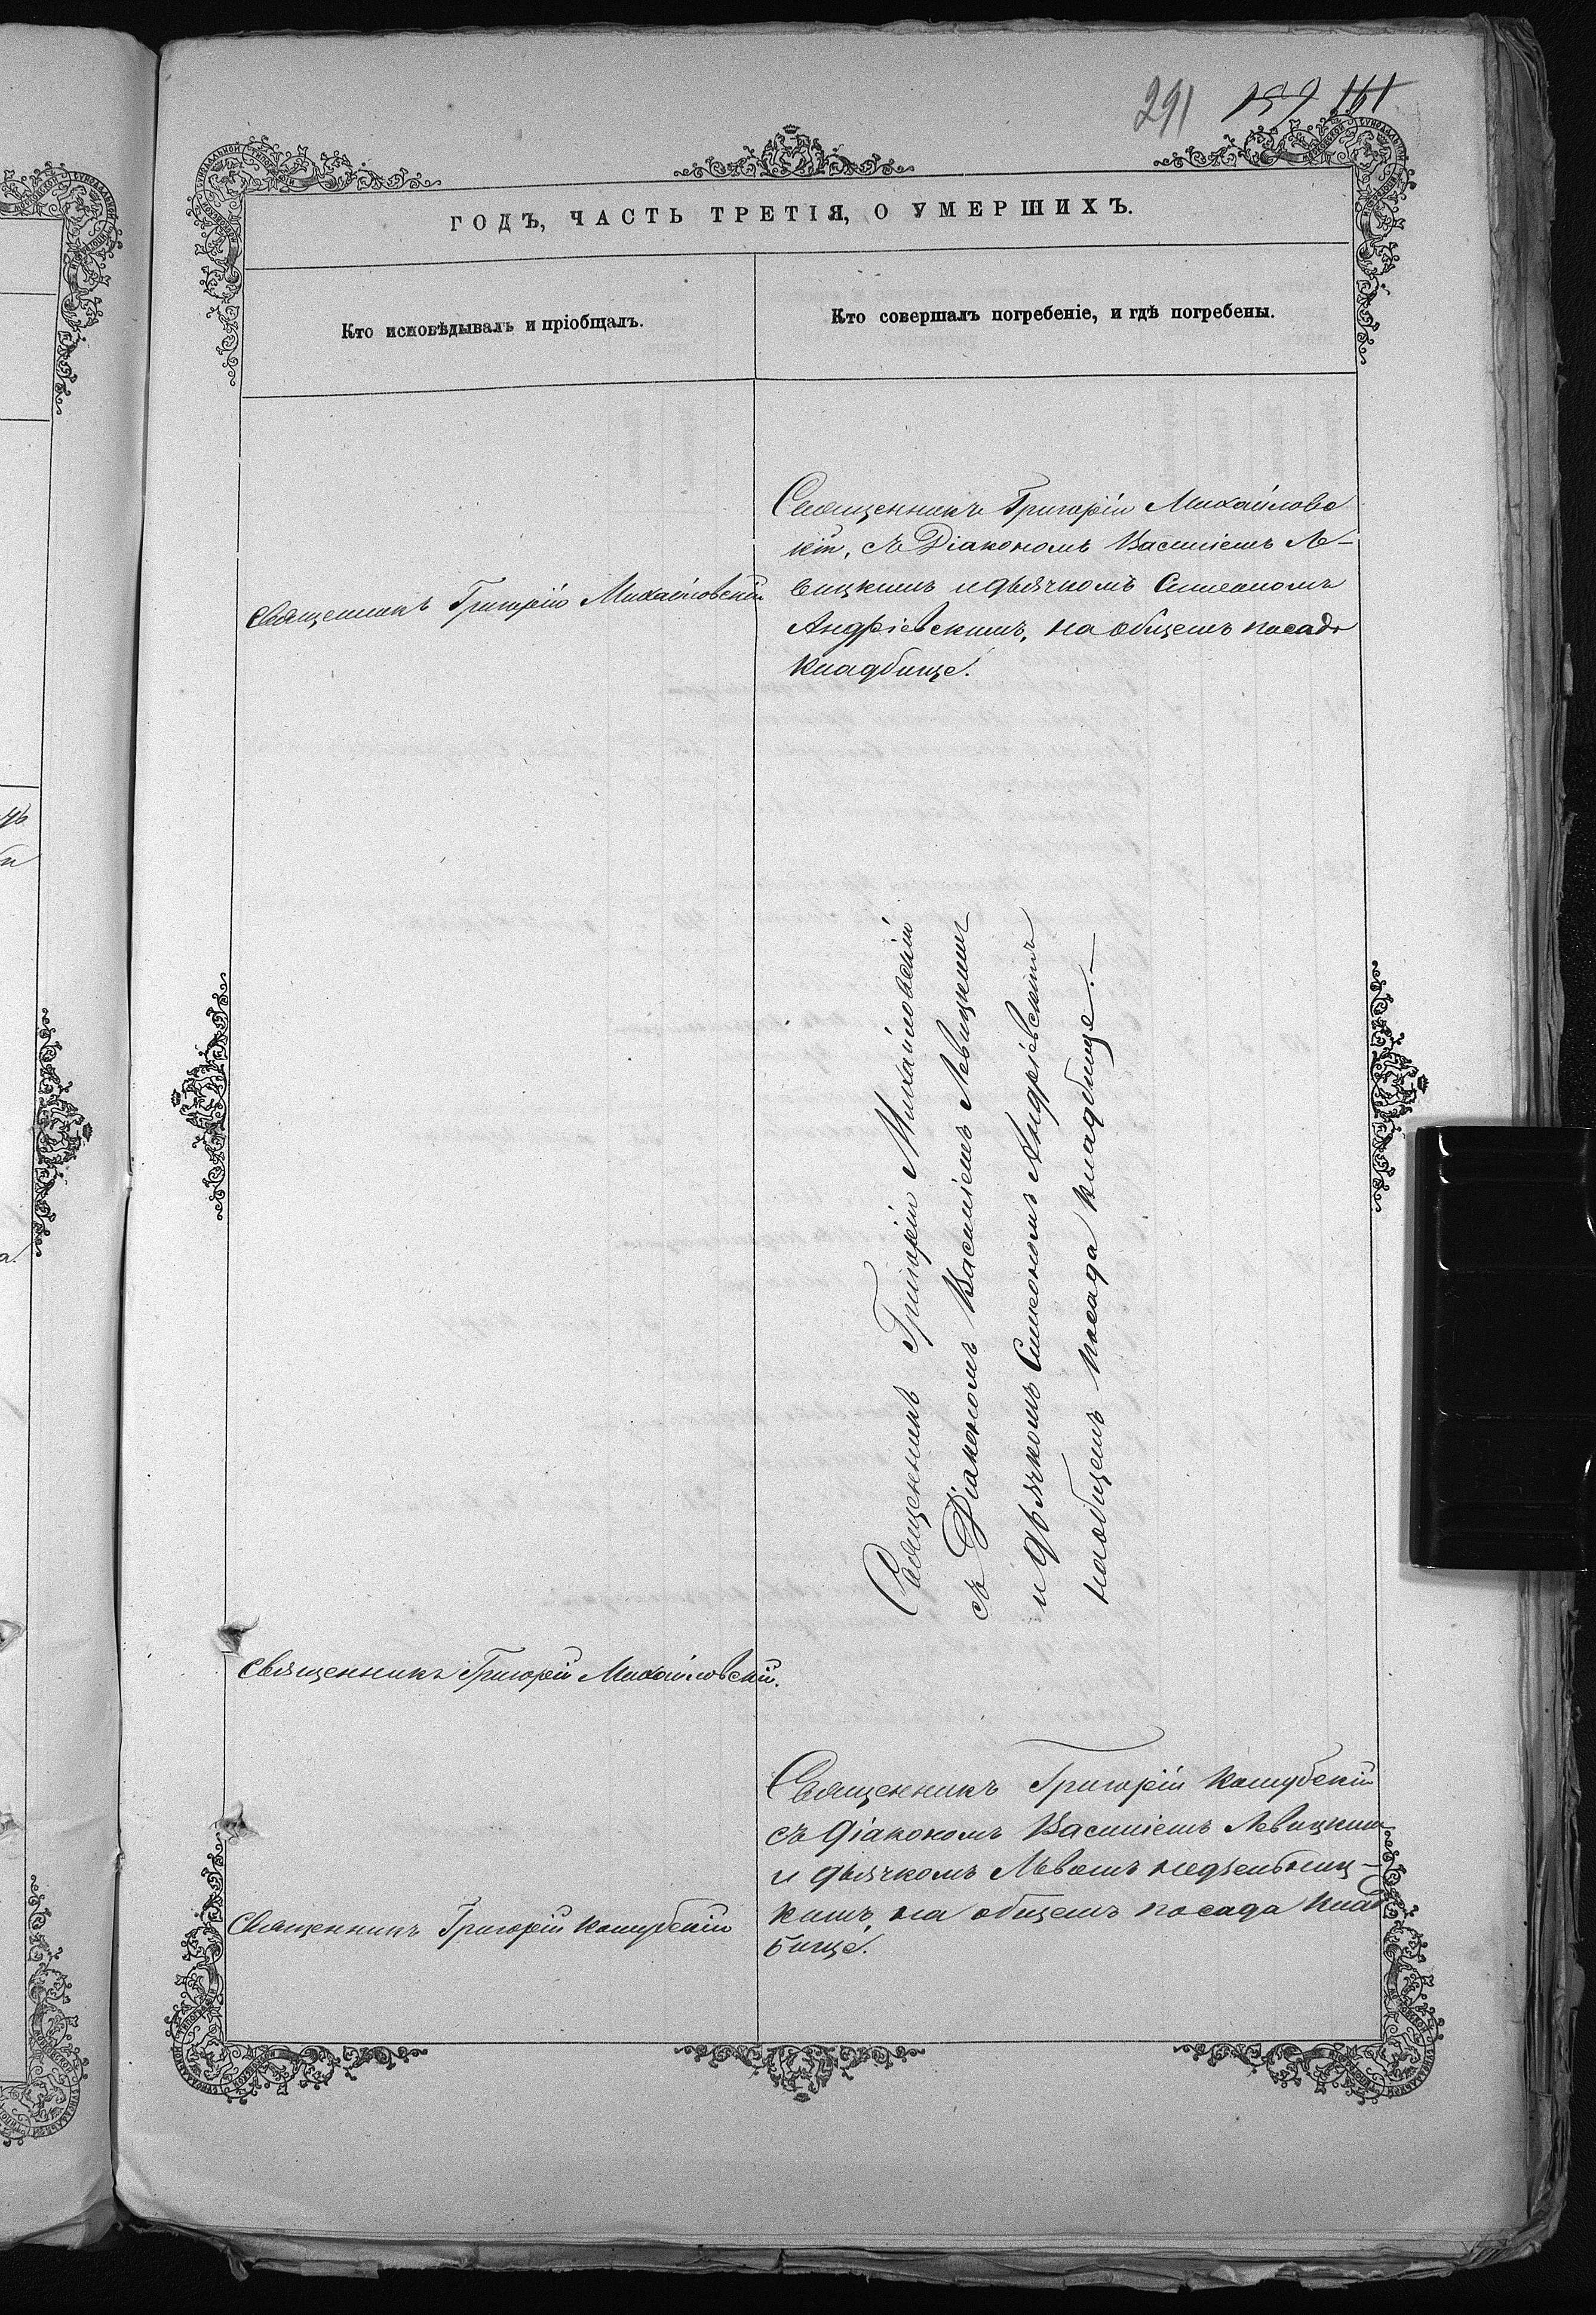 291 159 161
ГОДЪ, ЧАСТЬ ТРЕТІЯ, О УМЕРШИХЪ.
Кто исповѣдывалъ и пріобщалъ.
Кто совершалъ погребеніе, и гдѣ погребены.
Священникъ Григорій Михайловскій
Священникъ Григорій Михайловс
кій, съ Діакономъ Василіемъ Ле-
вицкимъ и дьячкомъ Симеономъ
Андріевскимъ, на общемъ посада
кладбище.
Священникъ Григорій Михайловскій
съ Діакономъ Василіемъ Левицкимъ
и дьячкомъ Симеономъ Андріевскимъ
на общемъ посада кладбище.—
Священникъ Григорій Михайловскій.
Священникъ Григорій Кошубскій
съ діакономъ Василіемъ Левицкимъ
и дьячкомъ Львомъ
кимъ, на общемъ посада клад
бище.
Священникъ Григорій Кошубскій